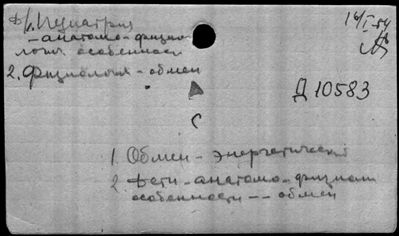 1. Педиатрия
- анатомо-физио
логич. особенности
2. Физиология - обмен
14/I-54
Д 10583
С
1. Обмен - энергетический
2 Дети - анатомо-физиол
особенности -- обмен